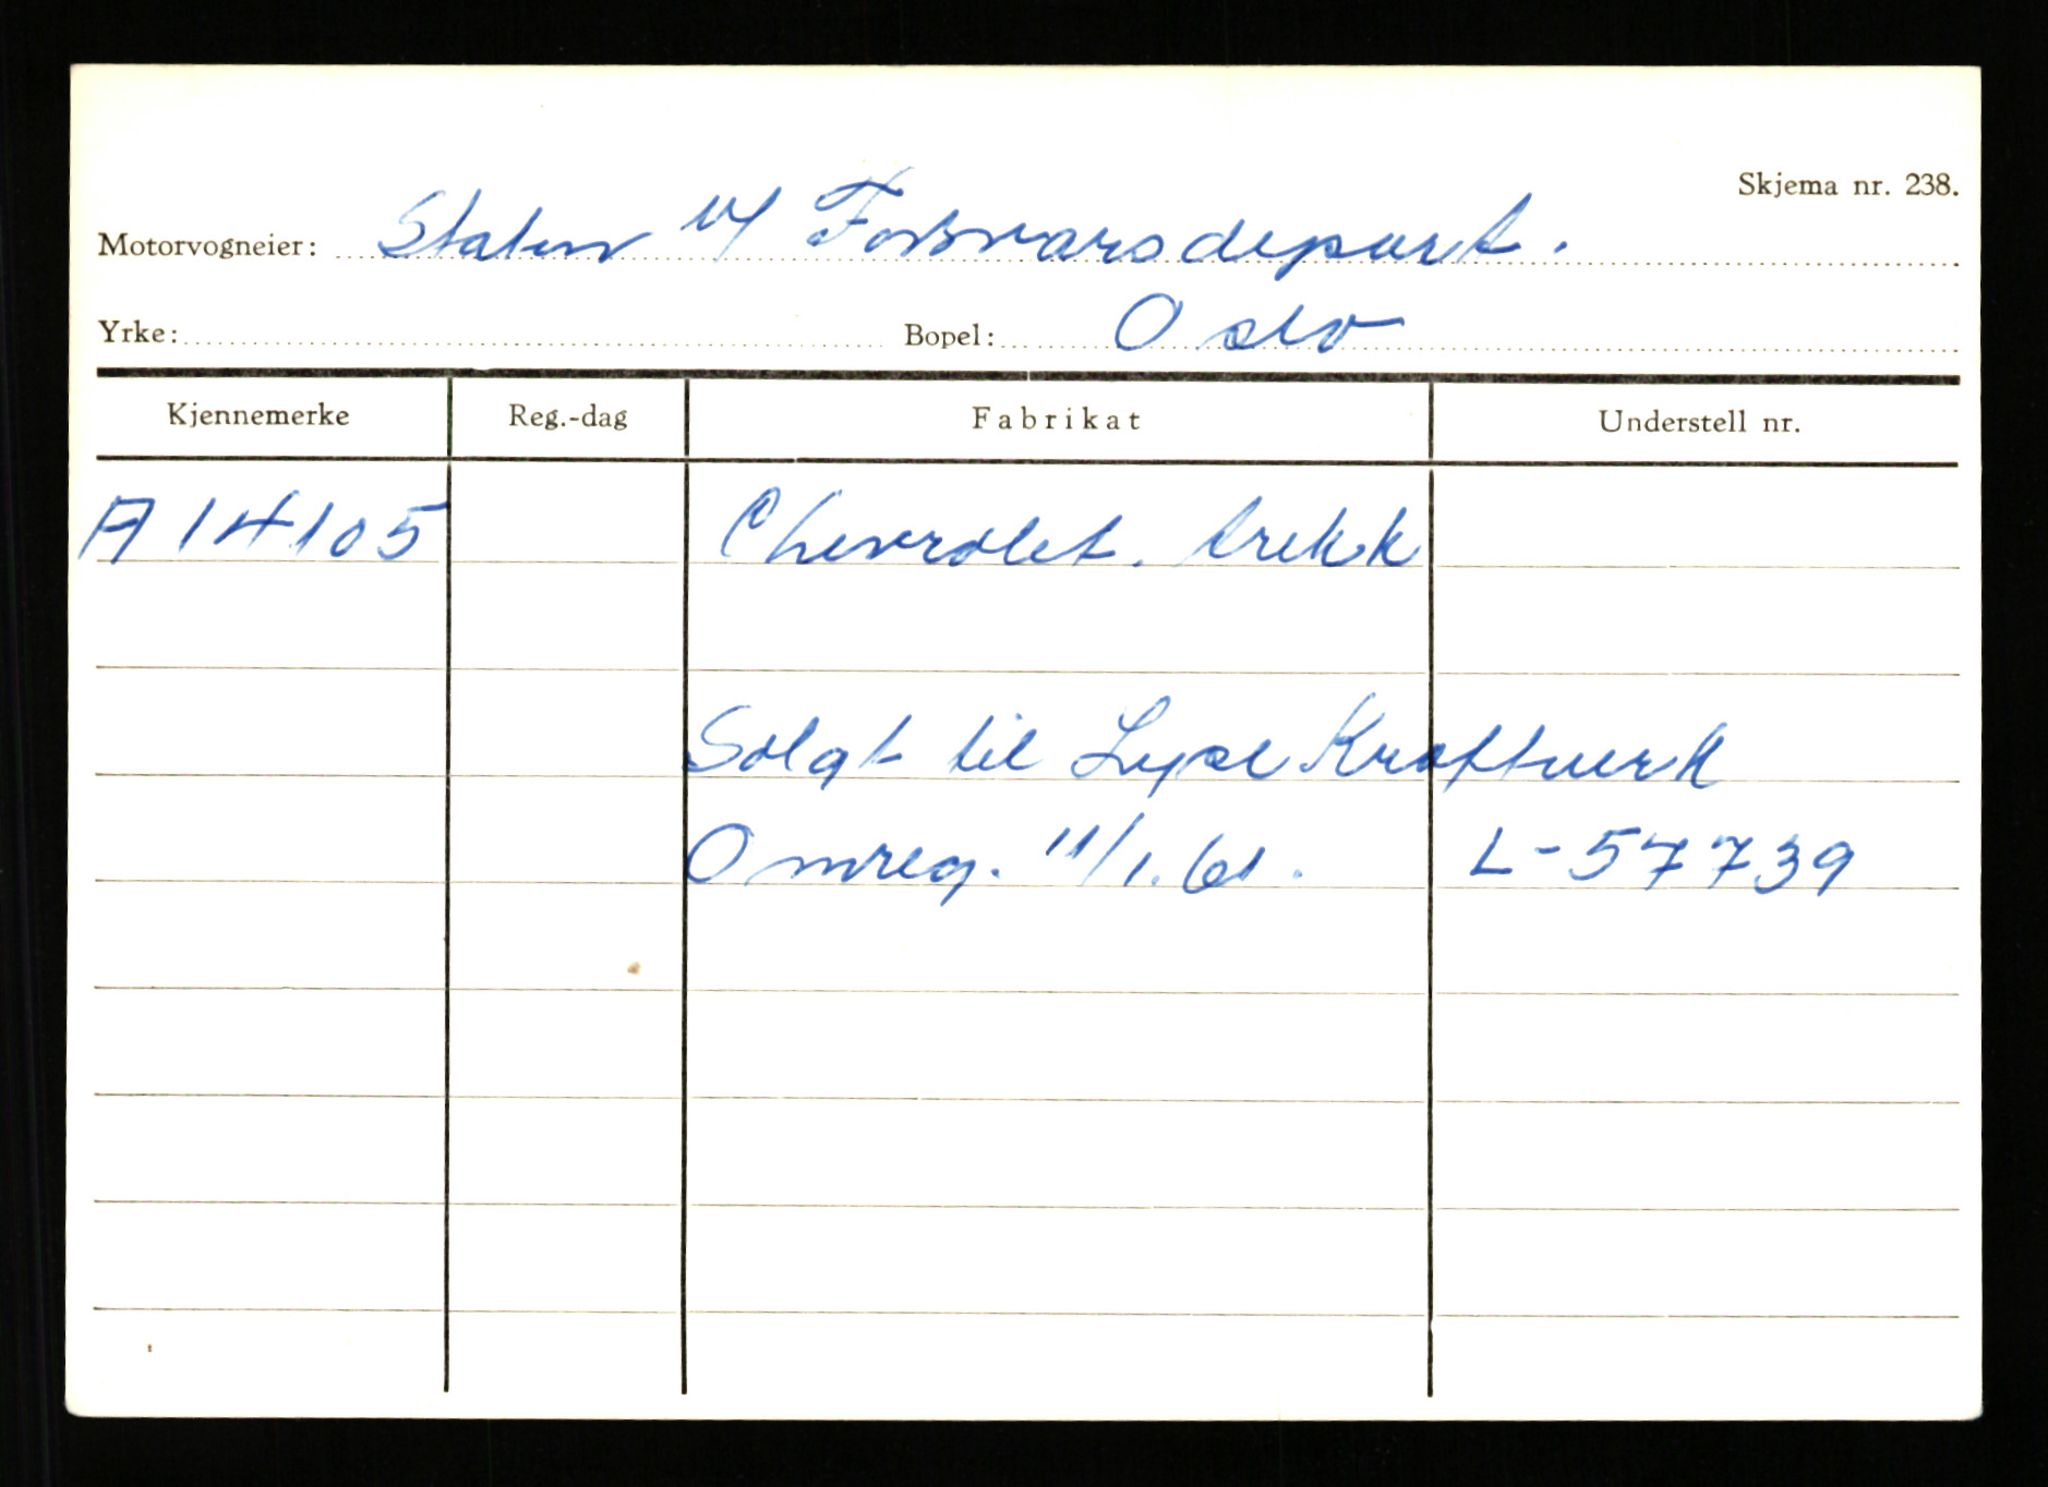 Skjema nr. 238.
Motorvogneier: Staten v/ Forsvarsdepart.
Yrke: Bopel: Oslo
Kjennemerke Reg.-dag Fabrikat Understell nr.
A 14105 Chevrolet. trekk
Solgt til Lyse Kraftverk
Omreg. 11/1.61. L-57739